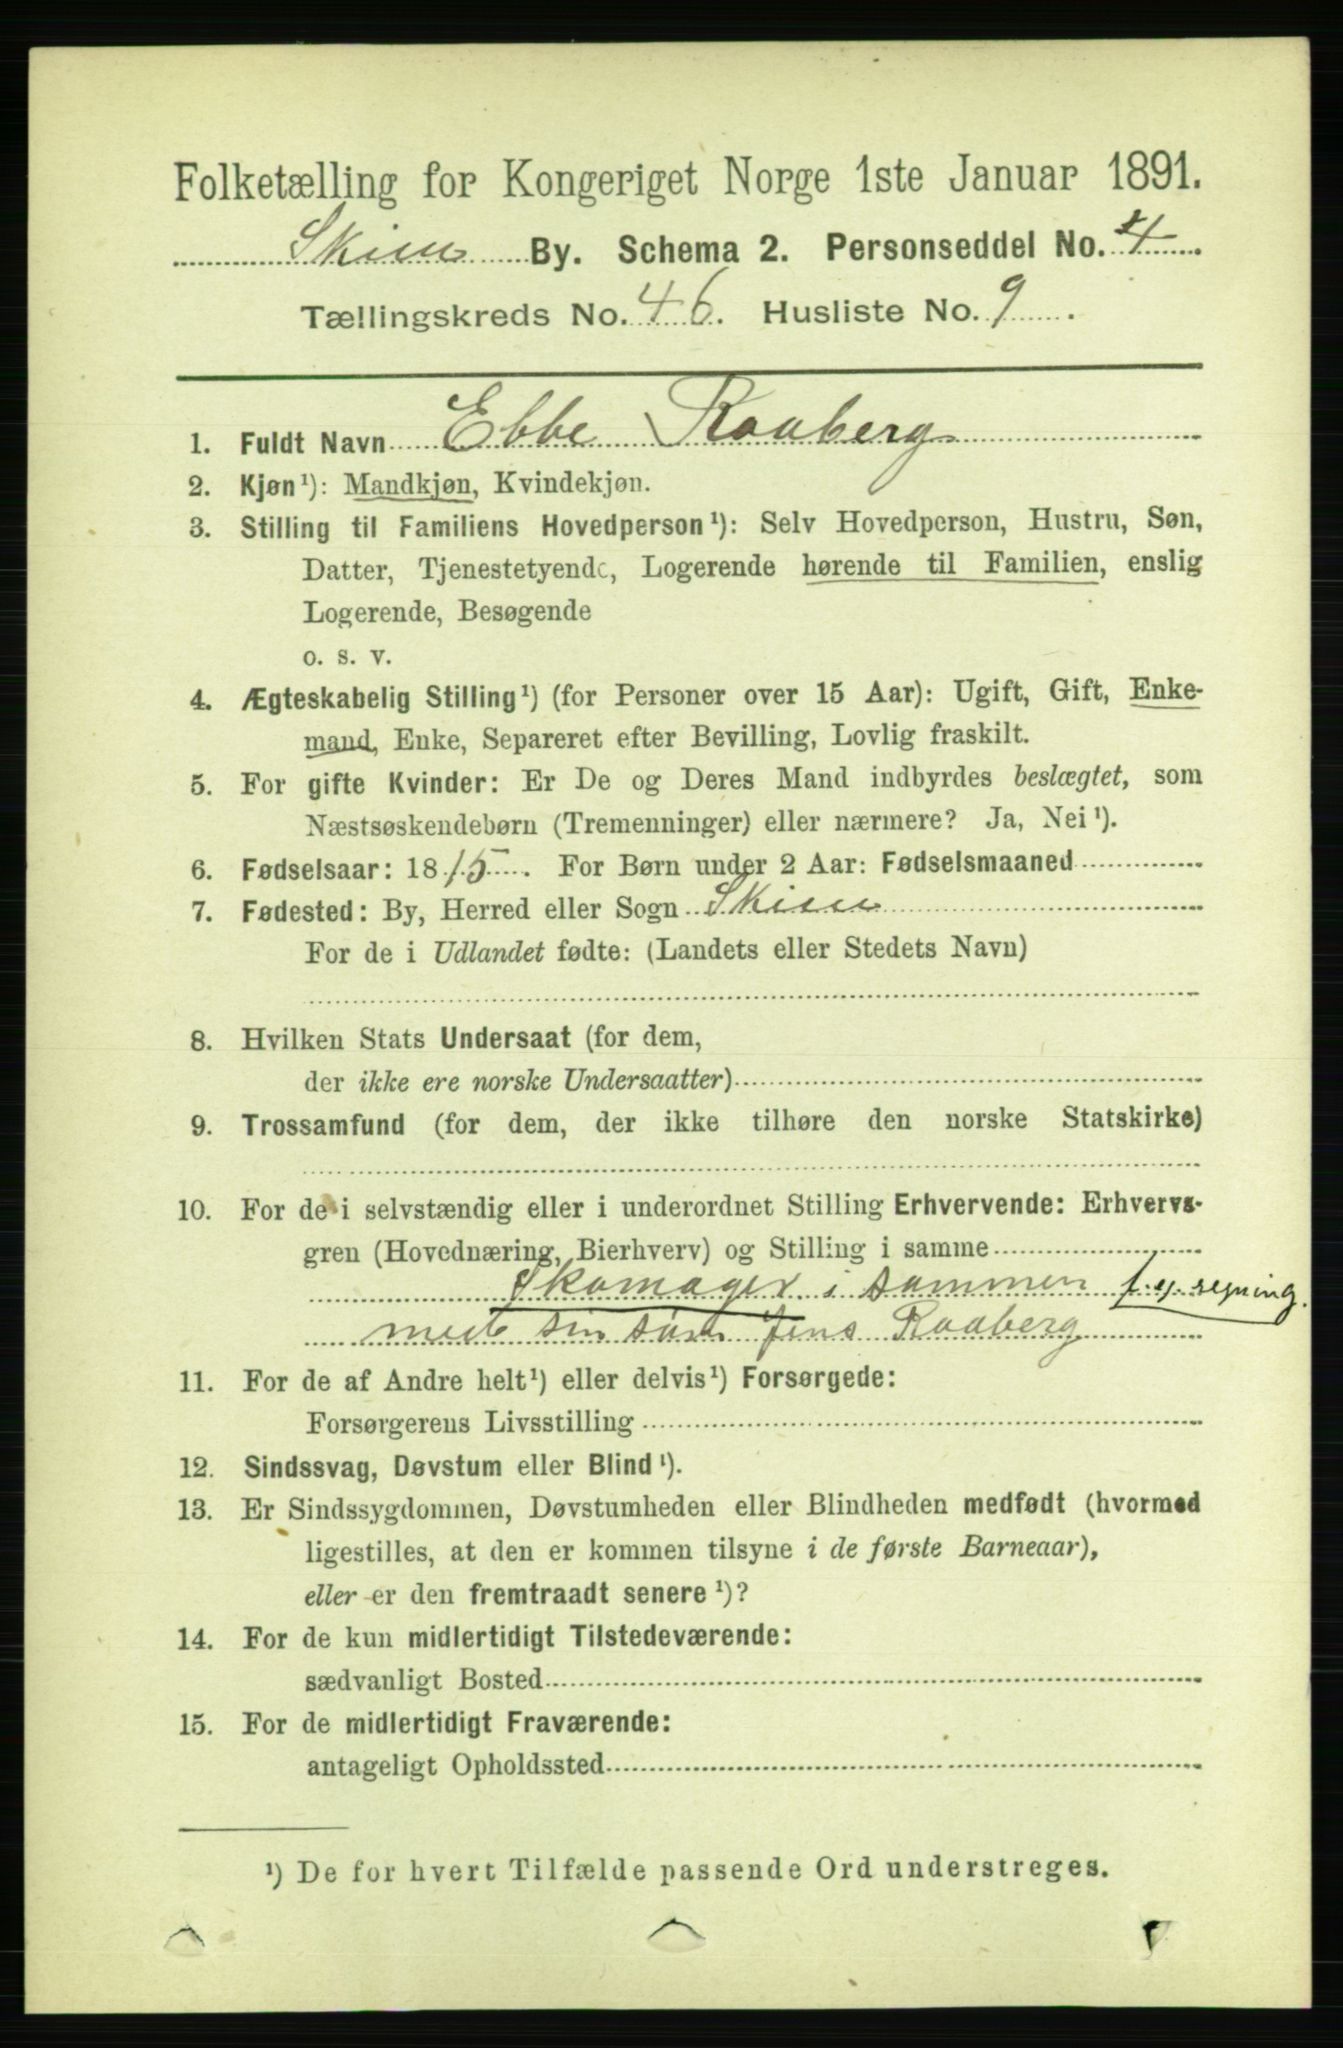 Folketælling for Kongeriget Norge 1ste Januar 1891.
Skien By. Schema 2. Personseddel No. 4
Tællingskreds No. 46. Husliste No. 9.
1. Fuldt Navn Ebbe Raaberg
2. Kjøn¹): Mandkjøn, Kvindekjøn.
3. Stilling til Familiens Hovedperson¹): Selv Hovedperson, Hustru, Søn,
Datter, Tjenestetyende, Logerende hørende til Familien, enslig
Logerende, Besøgende
o. s. v.
4. Ægteskabelig Stilling¹) (for Personer over 15 Aar): Ugift, Gift, Enke-
mand, Enke, Separeret efter Bevilling, Lovlig fraskilt.
5. For gifte Kvinder: Er De og Deres Mand indbyrdes beslægtet, som
Næstsøskendebørn (Tremenninger) eller nærmere? Ja, Nei¹).
6. Fødselsaar: 1815. For Børn under 2 Aar: Fødselsmaaned
7. Fødested: By, Herred eller Sogn Skien
For de i Udlandet fødte: (Landets eller Stedets Navn)
8. Hvilken Stats Undersaat (for dem,
der ikke ere norske Undersaatter)
9. Trossamfund (for dem, der ikke tilhøre den norske Statskirke)
10. For de i selvstændig eller i underordnet Stilling Erhvervende: Erhvervs-
gren (Hovednæring, Bierhverv) og Stilling i samme
Skomager i sammen f. eg. regning.
med sin søn Jens Raaberg
11. For de af Andre helt¹) eller delvis¹) Forsørgede:
Forsørgerens Livsstilling
12. Sindssvag, Døvstum eller Blind¹).
13. Er Sindssygdommen, Døvstumheden eller Blindheden medfødt (hvormed
ligestilles, at den er kommen tilsyne i de første Barneaar),
eller er den fremtraadt senere¹)?
14. For de kun midlertidigt Tilstedeværende:
sædvanligt Bosted
15. For de midlertidigt Fraværende:
antageligt Opholdssted
¹) De for hvert Tilfælde passende Ord understreges.